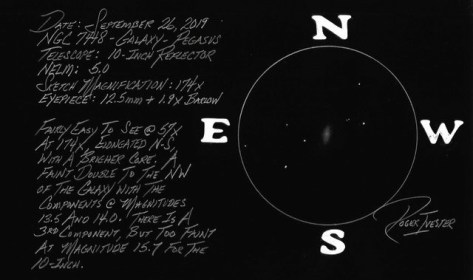 DATE: SEPTEMBER 26, 2019
NGC 7448 - GALAXY - PEGASUS
TELESCOPE: 10-INCH REFLECTOR
NELM: 5.0
SKETCH MAGNIFICATION: 174X
EYEPIECE: 12.5mm + 1.9X BARLOW
FAIRLY EASY TO SEE @ 57X
AT 174X, ELONGATED N-S,
WITH A BRIGHER CORE. A
FAINT DOUBLE TO THE NW
OF THE GALAXY WITH THE
COMPONENTS @ MAGNITUDES
13.5 AND 14.0. THERE IS A
3RD COMPONENT, BUT TOO FAINT
AT MAGNITUDE 15.7 FOR THE
10-INCH.
N
E
W
S
ROGER IVESTER